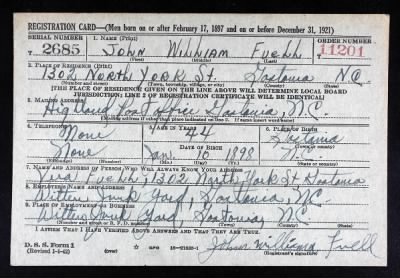 REGISTRATION CARD—(Men born on or after February 17, 1897 and on or before December 31, 1921)
SERIAL NUMBER 1. NAME (Print) ORDER NUMBER
T 2685 JOHN WILLIAM FUELL 11201
(First) (Middle) (Last)
2. PLACE OF RESIDENCE (Print)
1302 NORTH YORK ST. Gastonia N.C.
(Number and street) (Town, township, village, or city) (County) (State)
[THE PLACE OF RESIDENCE GIVEN ON THE LINE ABOVE WILL DETERMINE LOCAL BOARD
JURISDICTION; LINE 2 OF REGISTRATION CERTIFICATE WILL BE IDENTICAL]
3. MAILING ADDRESS
Highland Post Office Gastonia, N.C.
4. TELEPHONE 5. AGE IN YEARS 6. PLACE OF BIRTH
None 44 Gastonia
DATE OF BIRTH (Town or county)
None Jan. 10 1898
(Mo.) (Day) (Yr.) (State or country)
7. NAME AND ADDRESS OF PERSON WHO WILL ALWAYS KNOW YOUR ADDRESS
1302 North York St Gastonia
8. EMPLOYER'S NAME AND ADDRESS
Junk Yard, Gastonia, N.C.
9. PLACE OF EMPLOYMENT OR BUSINESS
Junk Yard, Gastonia, N.C.
(Number and street or R. F. D. number) (Town) (County) (State)
I AFFIRM THAT I HAVE VERIFIED ABOVE ANSWERS AND THAT THEY ARE TRUE.
D. S. S. Form 1
(Revised 1-5-42) (over) John William Fuell
(Registrant's signature)